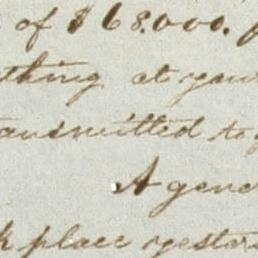 of $68.000.
thing at your
ansmitted to
A gene
k place yester